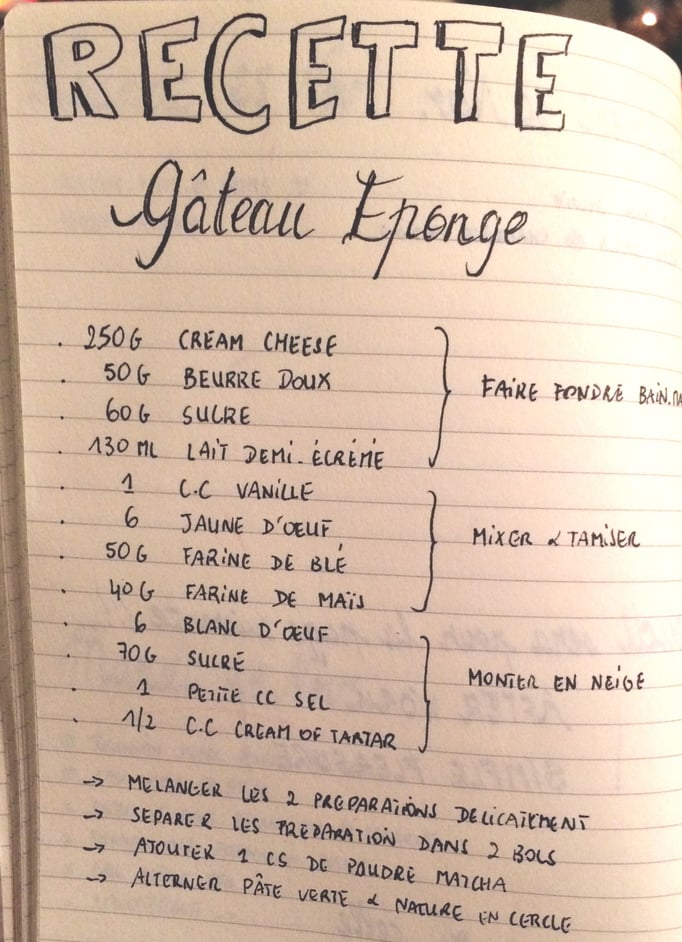 RECETTE
Gâteau Eponge
. 250G CREAM CHEESE
. 50G BEURRE DOUX
. 60G SUCRE
. 130 ML LAIT DEMI-ÉCRÉMÉ
FAIRE FONDRE BAIN.MA
. 1 C.C VANILLE
. 6 JAUNE D'OEUF
. 50G FARINE DE BLÉ
. 40G FARINE DE MAÏS
MIXER & TAMISER
. 6 BLANC D'OEUF
. 70G SUCRE
. 1 PETITE CC SEL
. 1/2 C.C CREAM OF TARTAR
MONTER EN NEIGE
→ MELANGER LES 2 PREPARATIONS DELICATEMENT
→ SEPARER LES PREPARATION DANS 2 BOLS
→ AJOUTER 1 CS DE POUDRE MATCHA
→ ALTERNER PÂTE VERTE & NATURE EN CERCLE